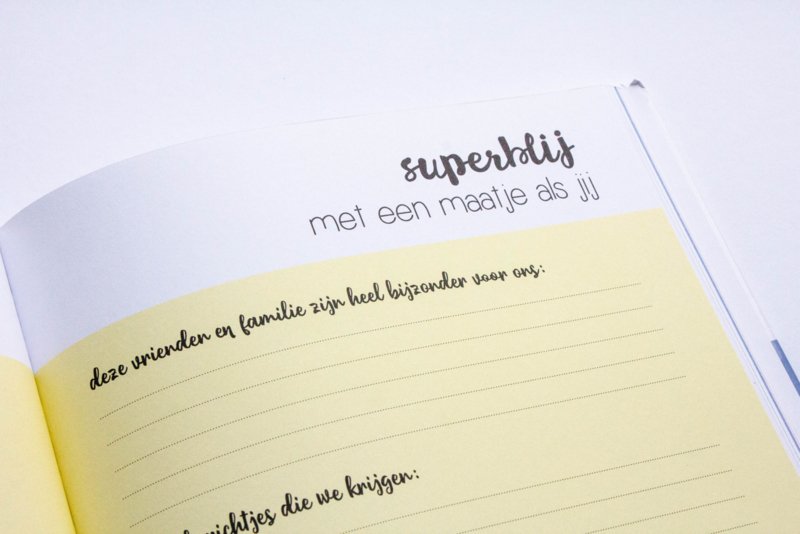 superblij
met een maatje als jij
deze vrienden en familie zijn heel bijzonder voor ons:
die we krijgen: